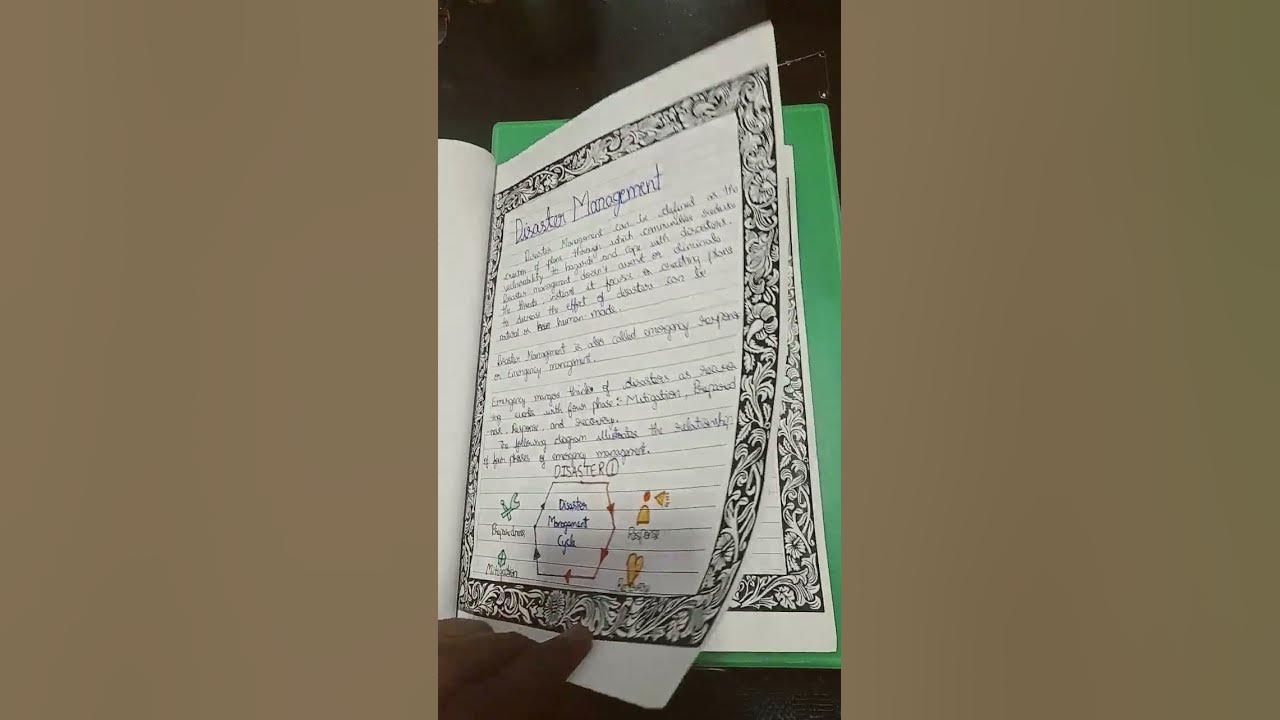 Disaster Management
Disaster Management can be defined as the
creation of plans through which communities reduce
vulnerability to hazards and cope with disasters.
Disaster management doesn't avert or eliminate
the threats, instead it focuses on creating plans
to decrease the effect of disasters can be
natural or human-made.
Disaster Management is also called emergency respons
or Emergency management.
Emergency mangers think of disasters as recurr
ing events with four phase: Mitigation, Prepared
ness, Response, and recovery.
The following diagram illustrates the relationship
of four phases of emergency management.
DISASTER
Disaster
Management
Cycle
Preparedness
Response
Mitigation
Recovery